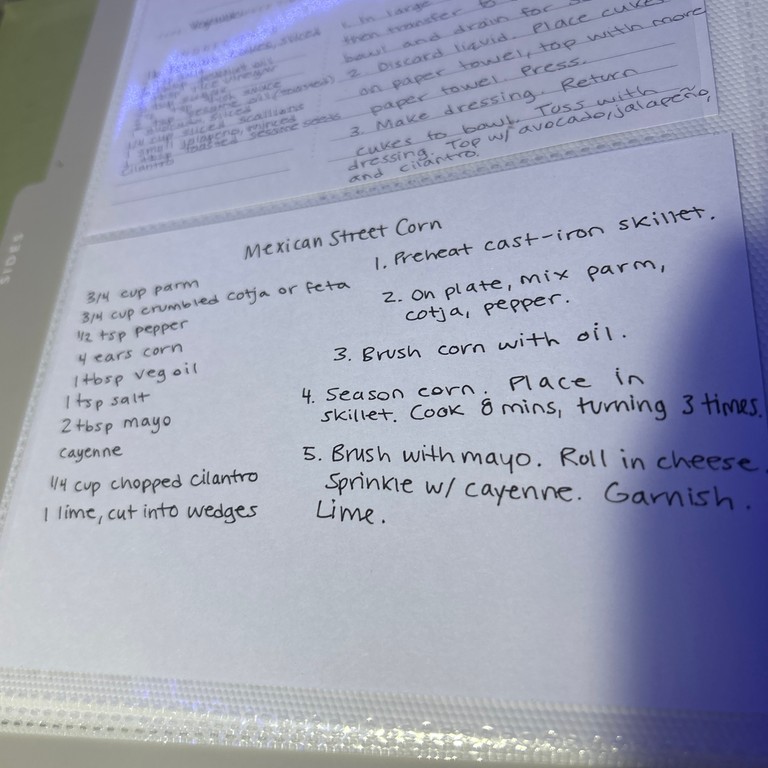 1. In large
then transfer
bowl and drain for
2. Discard liquid. Place cukes
on paper towel, top with more
paper towel. Press.
3. Make dressing. Return
cukes to bowl. Toss with
dressing. Top w/ avocado, jalapeño,
and cilantro.
sliced
rice vinegar
sesame oil (toasted)
avocado, sliced
1/4 cup sliced scallions
1 small jalapeño, minced
toasted sesame seeds
cilantro
SIDES
Mexican Street Corn
3/4 cup parm
3/4 cup crumbled cotja or feta
1/2 tsp pepper
4 ears corn
1 tbsp veg oil
1 tsp salt
2 tbsp mayo
cayenne
1/4 cup chopped cilantro
1 lime, cut into wedges
1. Preheat cast-iron skillet.
2. On plate, mix parm,
cotja, pepper.
3. Brush corn with oil.
4. Season corn. Place in
skillet. Cook 8 mins, turning 3 times.
5. Brush with mayo. Roll in cheese.
Sprinkle w/ cayenne. Garnish.
Lime.